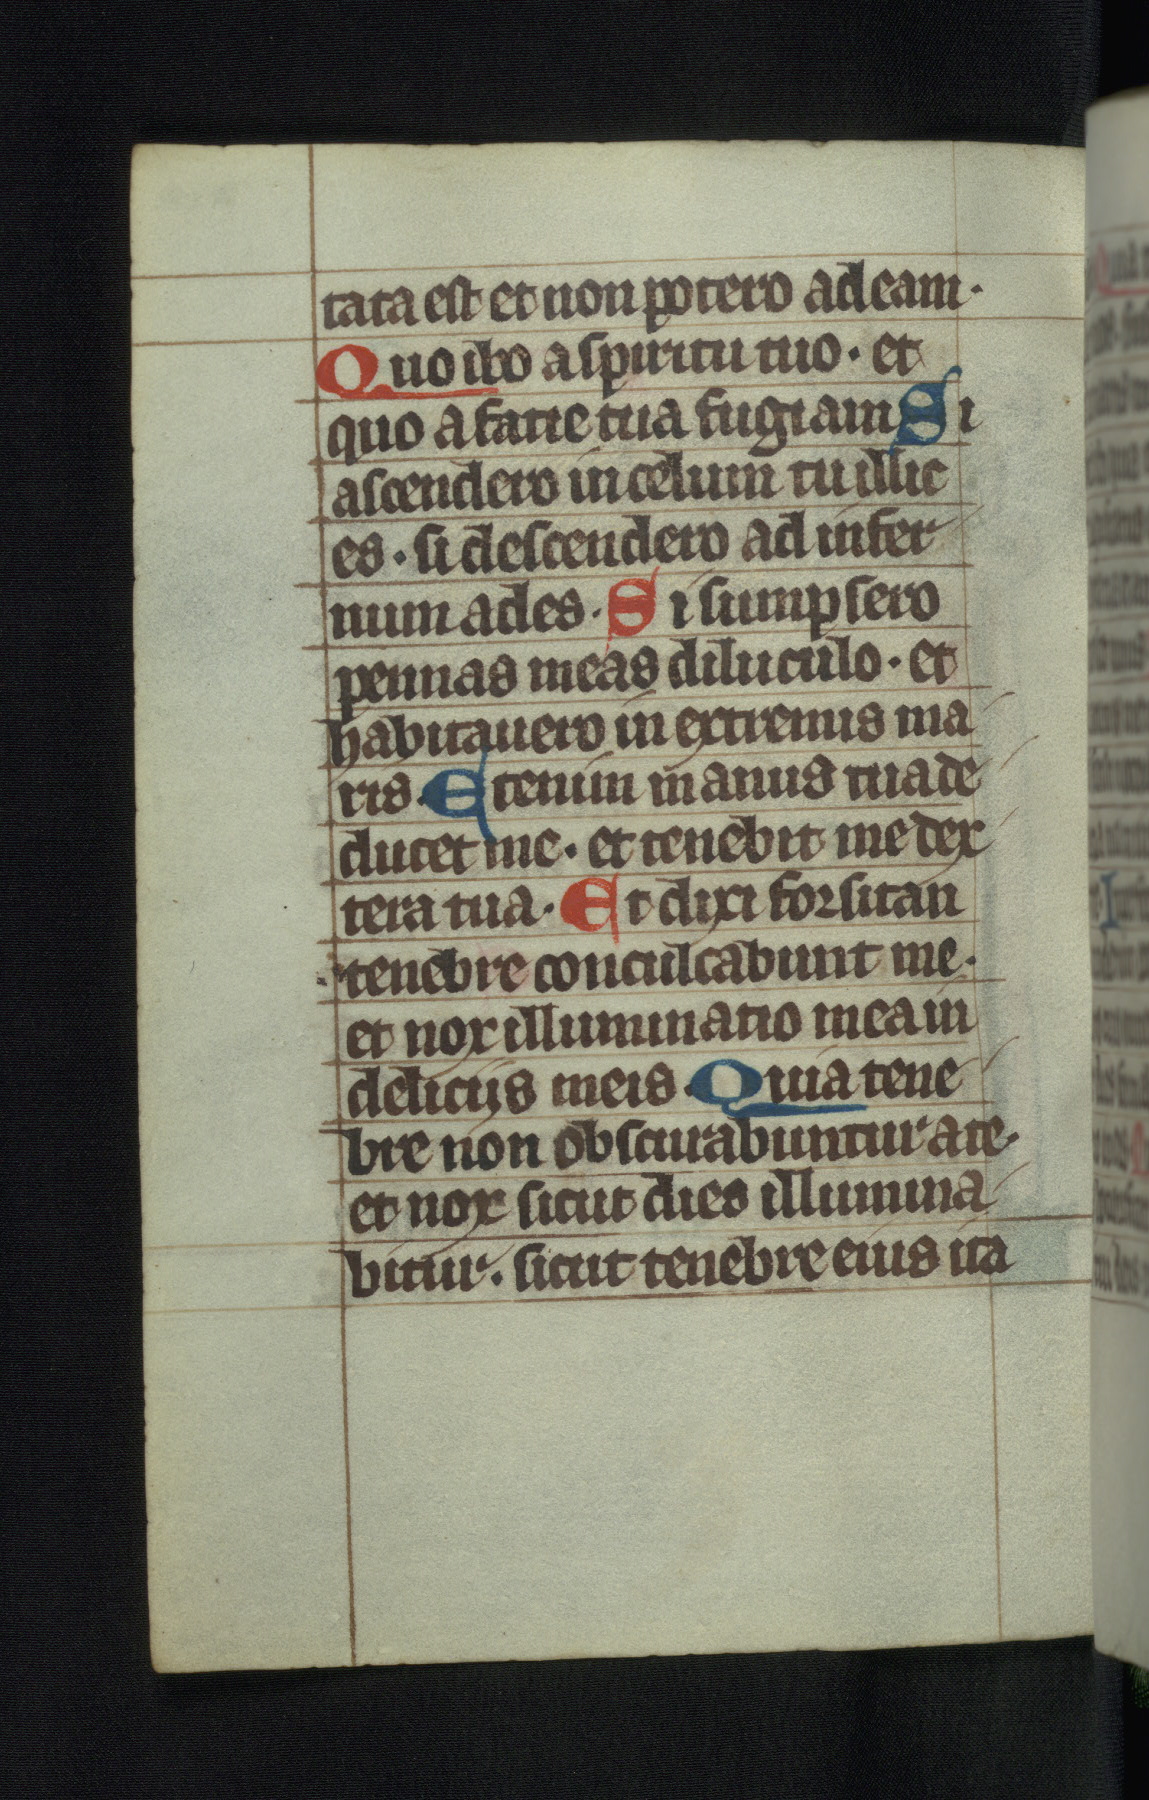 tata est et non potero ad eam·
Quo ibo a spiritu tuo· et
quo a facie tua fugiam Si
ascendero in celum tu illic
es· si descendero ad infer
num ades· Si sumpsero
pennas meas diluculo· et
habitauero in extremis ma
ris· Etenim manus tua de
ducet me· et tenebit me dex
tera tua· Et dixi forsitan
tenebre conculcabunt me·
et nox illuminatio mea in
delicijs meis· Quia tene
bre non obscurabuntur a te·
et nox sicut dies illumina
bitur· sicut tenebre eius ita